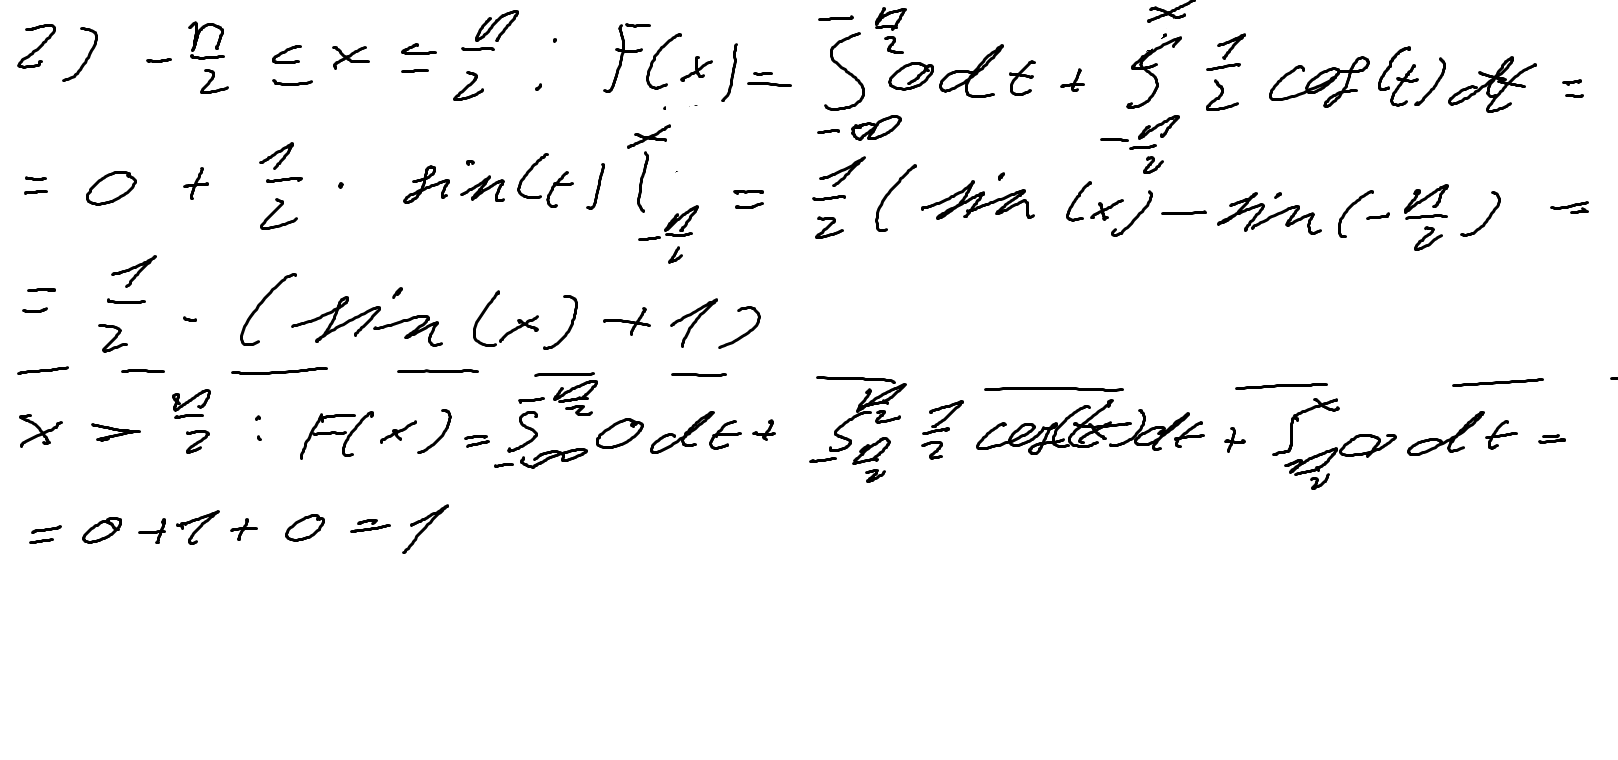 2) -π/2 ≤ x ≤ π/2 : F(x) = ∫_{-∞}^{-π/2} 0 dt + ∫_{-π/2}^{x} 1/2 cos(t) dt =
= 0 + 1/2 · sin(t) |_{-π/2}^{x} = 1/2 (sin(x) - sin(-π/2) =
= 1/2 · (sin(x) + 1)
x > π/2 : F(x) = ∫_{-∞}^{-π/2} 0 dt + ∫_{-π/2}^{π/2} 1/2 cos(t) dt + ∫_{π/2}^{x} 0 dt =
= 0 + 1 + 0 = 1